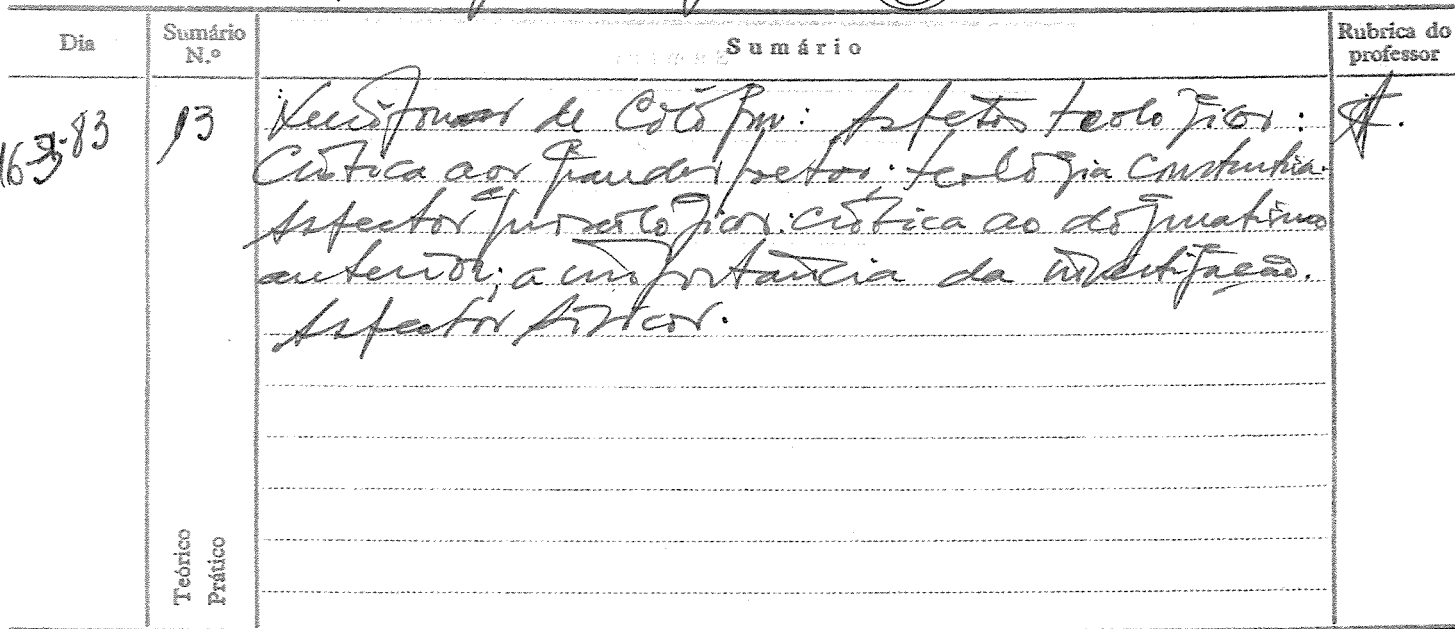 Dia
Sumário N.º
Sumário
Rubrica do professor
16-3-83
13
Xenófones de Cólofon: Aspetos teológicos:
Crítica aos grandes poetas; teologia construtiva.
Aspectos gnoseológicos: crítica ao dogmatismo
anterior; a importância da investigação.
Aspectos físicos.
Teórico
Prático